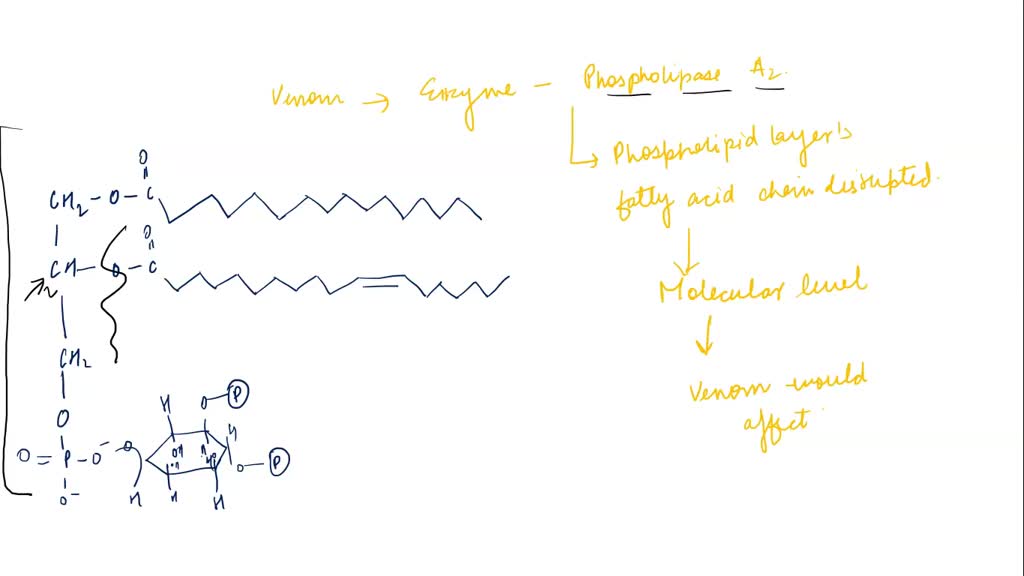 Venom → Enzyme – Phospholipase A2.
Phospholipid layer's
fatty acid chain disrupted.
Molecular level
Venom would
affect
O
CH2 – O – C
O
CH – O – C
2
CH2
O
O = P – O⁻
O⁻
O
H
O – P
H
O – P
OH
H
H
H